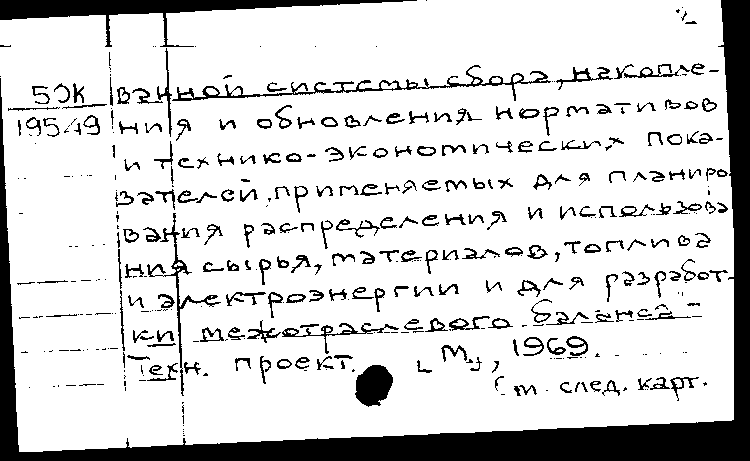 2
5ЭК
19549
ванной системы сбора, накопле-
ния и обновления нормативов
и технико-экономических пока-
зателей, применяемых для планиро
вания распределения и использова
ния сырья, материалов, топлива
и электроэнергии и для разработ-
ки межотраслевого баланса" -
Техн. проект. М., 1969.
См. след. карт.